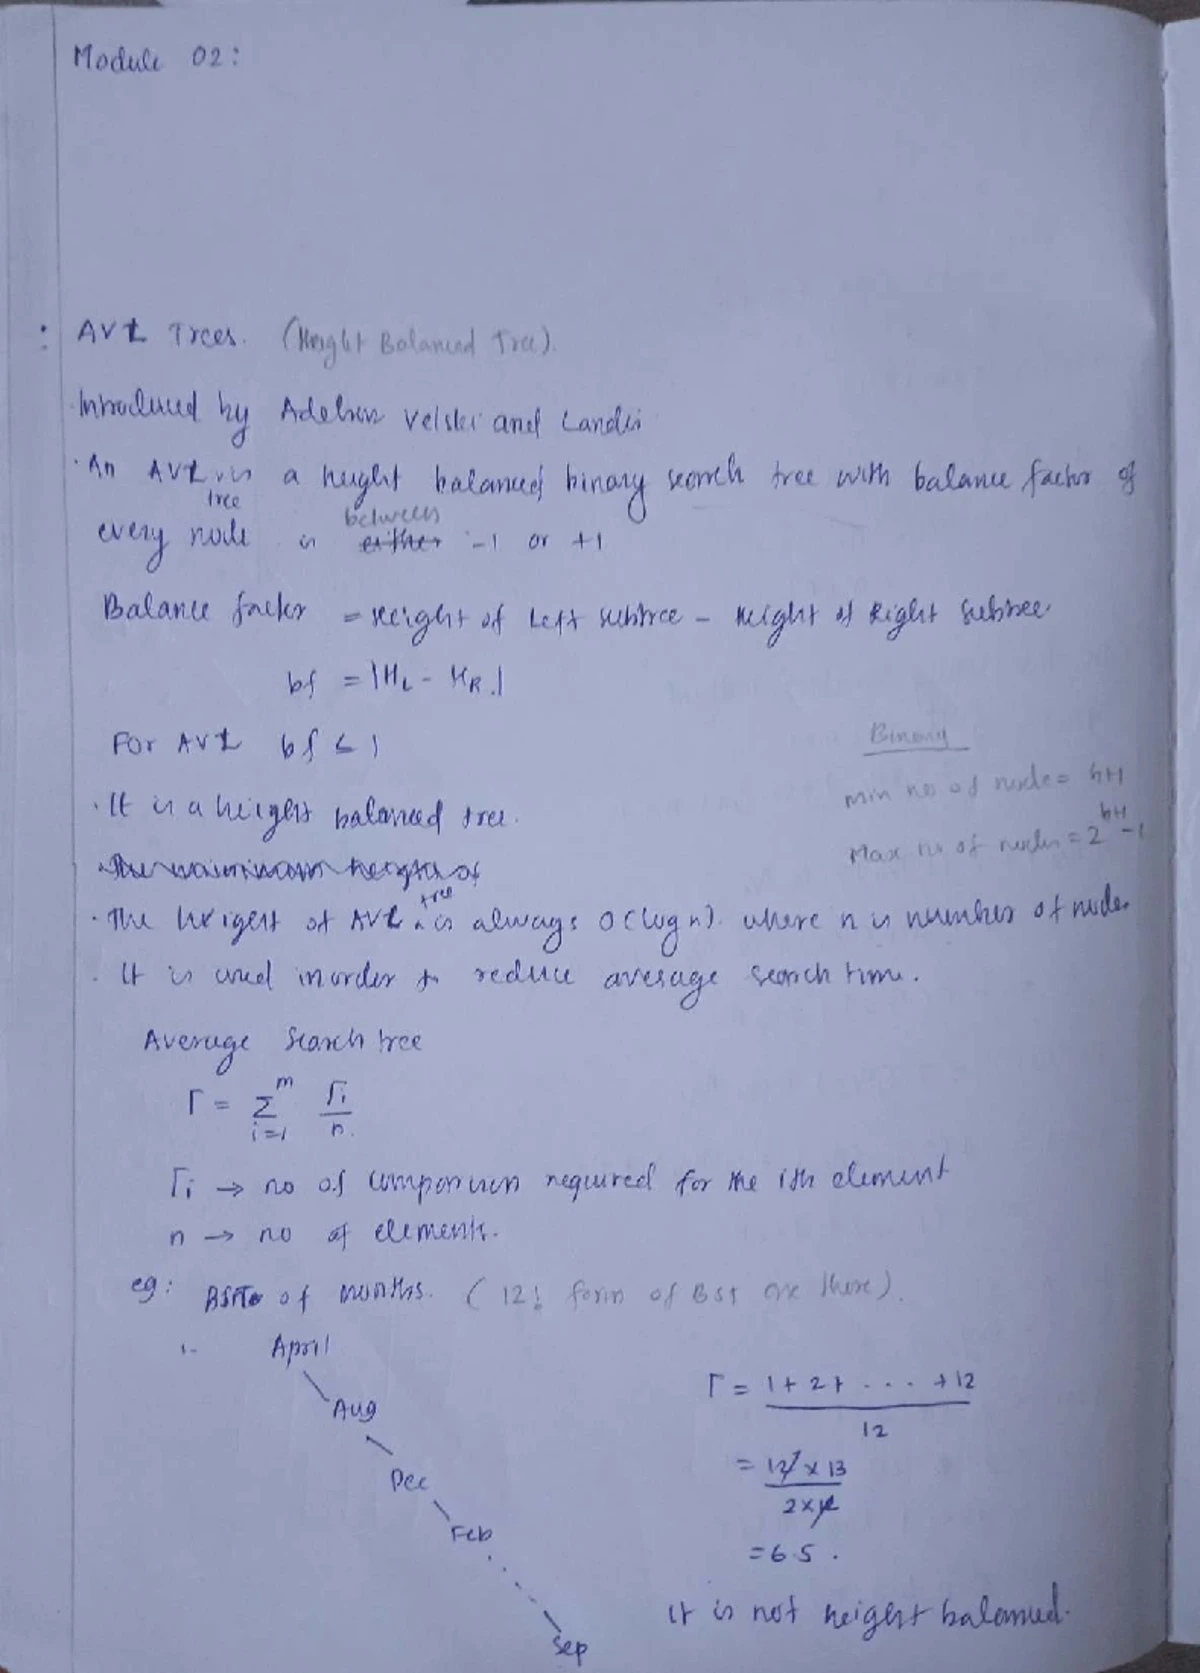 Module 02:
: AVL Trees. (Height Balanced Tree).
Introduced by Adelson Velski and Landis
· An AVL tree is a height balanced binary search tree with balance factor of
every node is between either -1 or +1
Balance factor = Height of Left subtree - Height of Right Subtree
bf = |HL - HR.|
For AVL bf ≤ 1
Binary
min no of nodes = h+1
Max no of nodes = 2^h+1 - 1
· It is a height balanced tree.
· The height of AVL tree is always O(log n). where n is number of nodes
· It is used inorder to reduce average search time.
Average Search tree
Γ = Σ^m i=1 Γi/n.
Γi → no of comparison required for the ith element
n → no of elements.
eg: BST of months. (12! form of BST are there).
1- April
Aug
Dec
Feb
Sep
Γ = 1+2+ . . . +12
12
= 12 x 13
2 x 12
= 6.5 .
it is not height balanced.